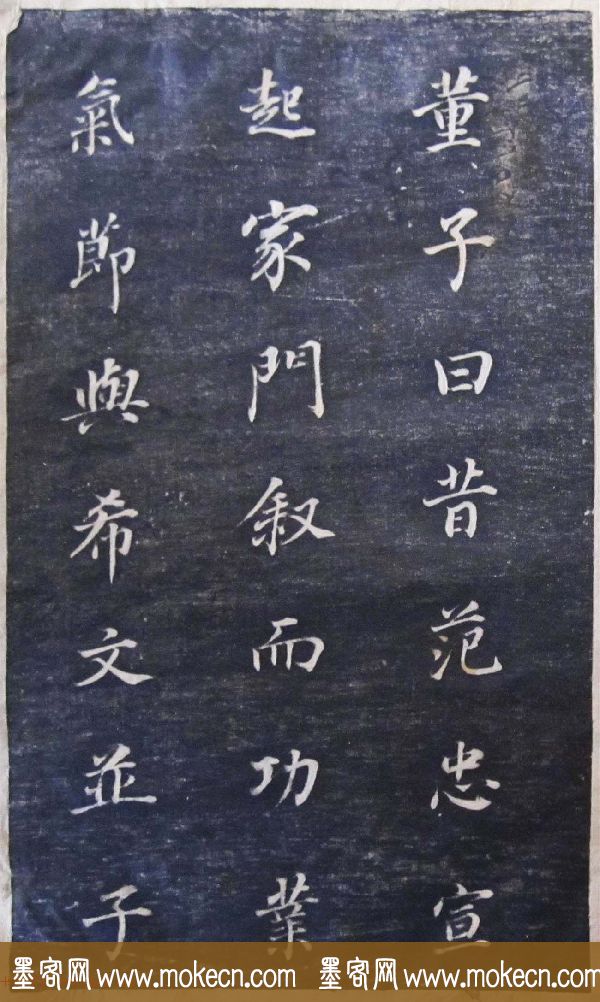 董子曰昔范忠宣
起家門叙而功業
氣節與希文並子
墨客网 www.mokecn.com 墨客网 www.mokecn.com